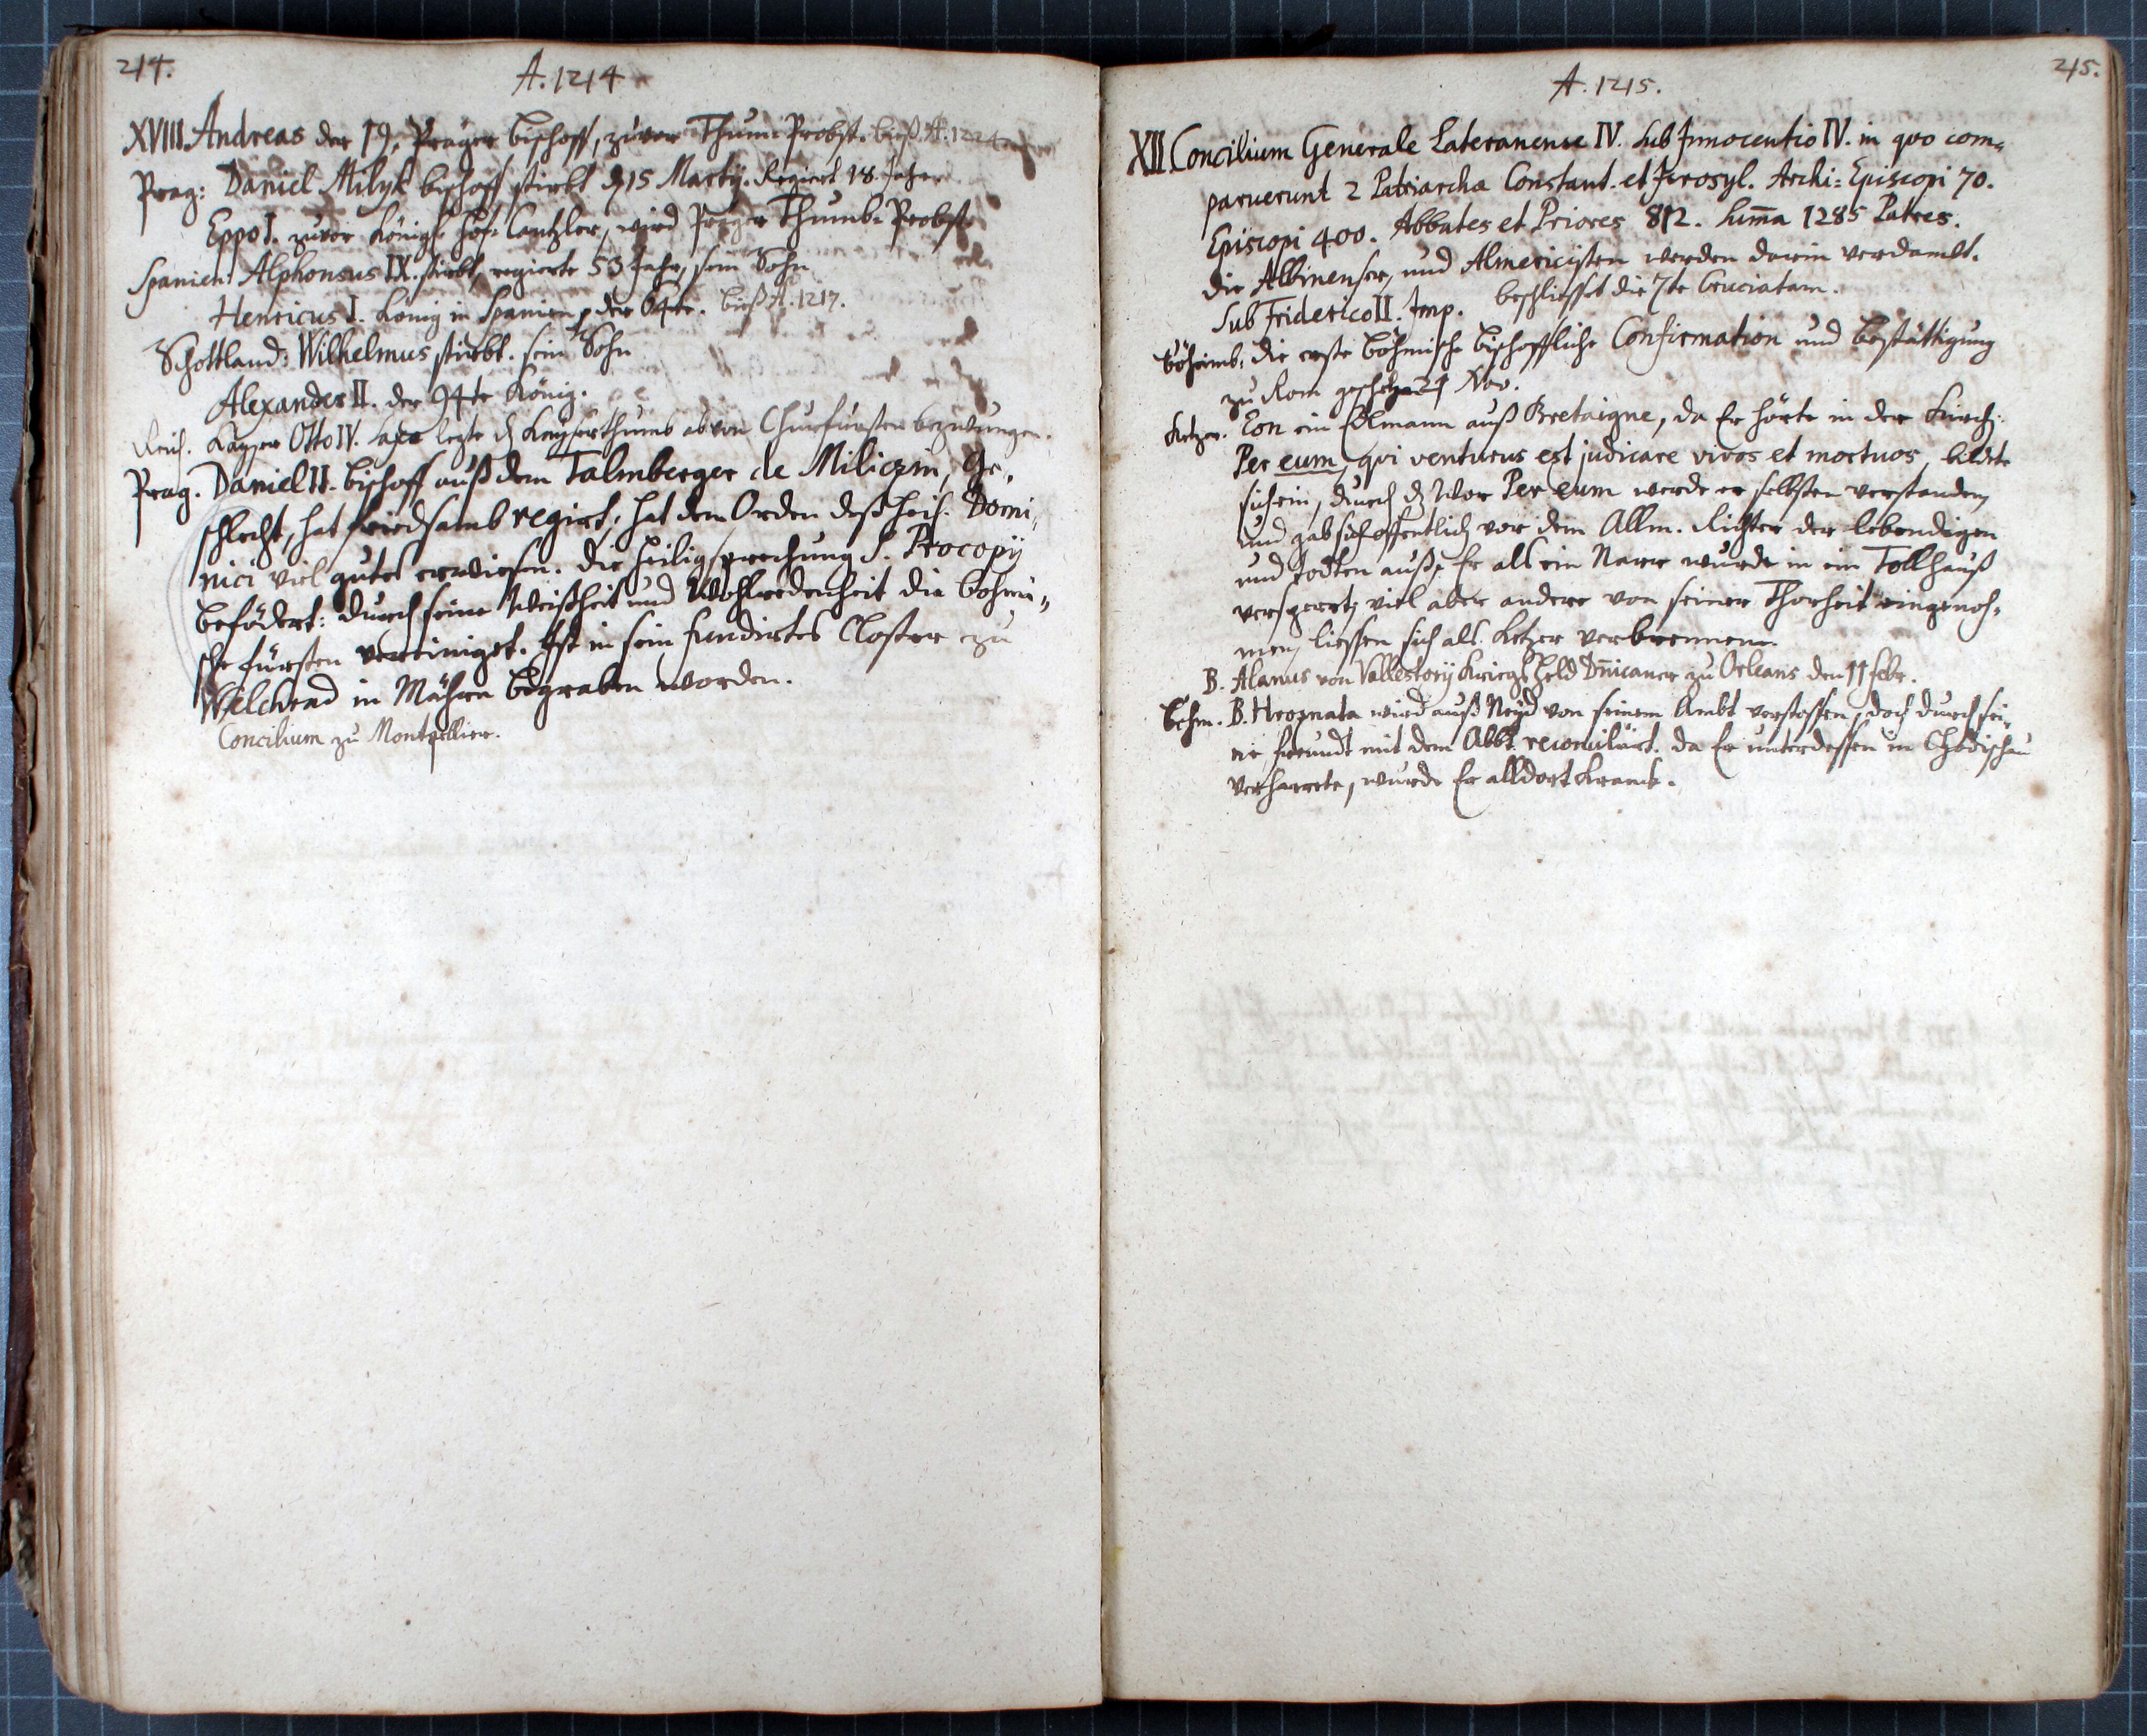 214.
A. 1214
XVIII. Andreas der 19. Prager Bischoff, zuvor Thum-Probst. bieß A. 1224
Prag: Daniel Milyk bischoff stirbt d. 15 Martij. Regiert 18. Jahr.
Eppo I. zuvor Königl. Hof-Cantzler, wird Prager Thumb-Probst
Spanien: Alphonsus IX. stirbt, regierte 53 Jahr, sein Sohn
Henricus I. König in Spanien, der 64te. bieß A. 1217.
Schottland: Wilhelmus stirbt. sein Sohn
Alexander II. der 94te König.
Reich. Kayser Otto IV. legte d. Kayserthumb ab von Churfürsten bezwungen.
Prag. Daniel II. bischoff auß dem Talmberger de Miliczin, Ge-
schlecht, hat friedsamb regirt, hat dem Orden deß heil. Domi-
nici viel gutes erwiesen. Die Heiligsprechung S. Procopij
befödert: durch seine Weißheit und Wohlredenheit die böhmi-
sche fürsten vereiniget. Ist in sein fundirtes Closter zu
Welehrad in Mähren begraben worden.
Concilium zu Montpellier.
215.
A. 1215.
XII. Concilium Generale Lateranense IV. sub Innocentio IV. in qvo com-
paruerunt 2 Patriarcha Constant. et Jerosyl. Archi-Episcopi 70.
Episcopi 400. Abbates et Priores 812. Summa 1285 Patres.
die Albinenser, und Almericisten werden darin verdambt.
Sub Friderico II. Imp. beschliesset die 7te Cruciatam.
Böheimb: die erste böhmische bischoffliche Confirmation und bestättigung
zu Rom geschehen 21 Nov.
Ketzer. Eon ein Edlmann auß Bretaigne, da Er hörte in der Kirch:
Per eum, qvi venturus est judicare vivos et mortuos, bildete
sich ein, durch d. Wor Per eum werde er selbsten verstanden,
und gab sich offentlich vor dem Allm. Richter der lebendigen
und todten auß, Er als ein Narr wurde in ein Tollhauß
versperrt, viel aber andere von seiner Thorheit eingenoh-
men, liessen sich als Ketzer verbrennen.
B. Alanus von Vallestorij Kriegsheld Dnicaner zu Orleans den 11 febr.
Böhm. B. Hroznata wird auß Neyd von seinem Ambt verstossen, doch durch sei-
ne freundt mit dem Abbt reconciliirt. da Er unterdessen in Chodischau
verharrete, wurde Er alldort Kranck.